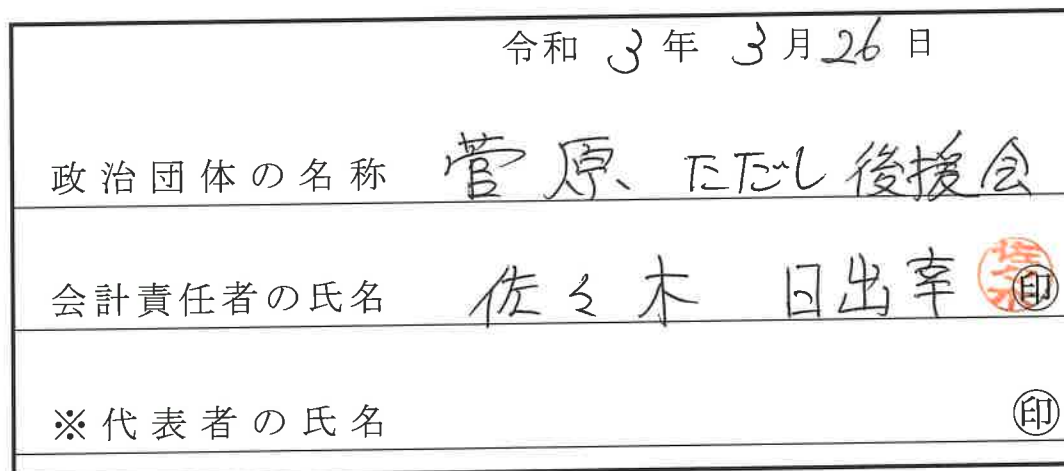 令和 3年 3月26日
政治団体の名称 菅原 ただし 後援会
会計責任者の氏名 佐々木 日出幸 佐々木 ㊞
※代表者の氏名 ㊞